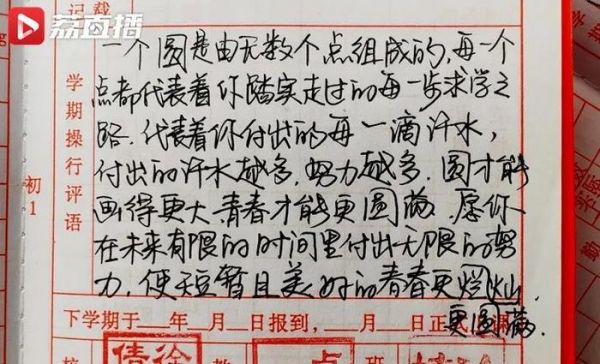 记载
荔直播
一个圆是由无数个点组成的,每一个
点都代表着你踏实走过的每一步求学之
路.代表着你付出的每一滴汗水,
付出的汗水越多.努力越多.圆才能
画得更大.青春才能更圆满.愿你
在未来有限的时间里付出无限的努
力.使短暂且美好的青春更灿烂.
更圆满.
学期操行评语
初1
下学期于 年 月 日报到, 月 日正式